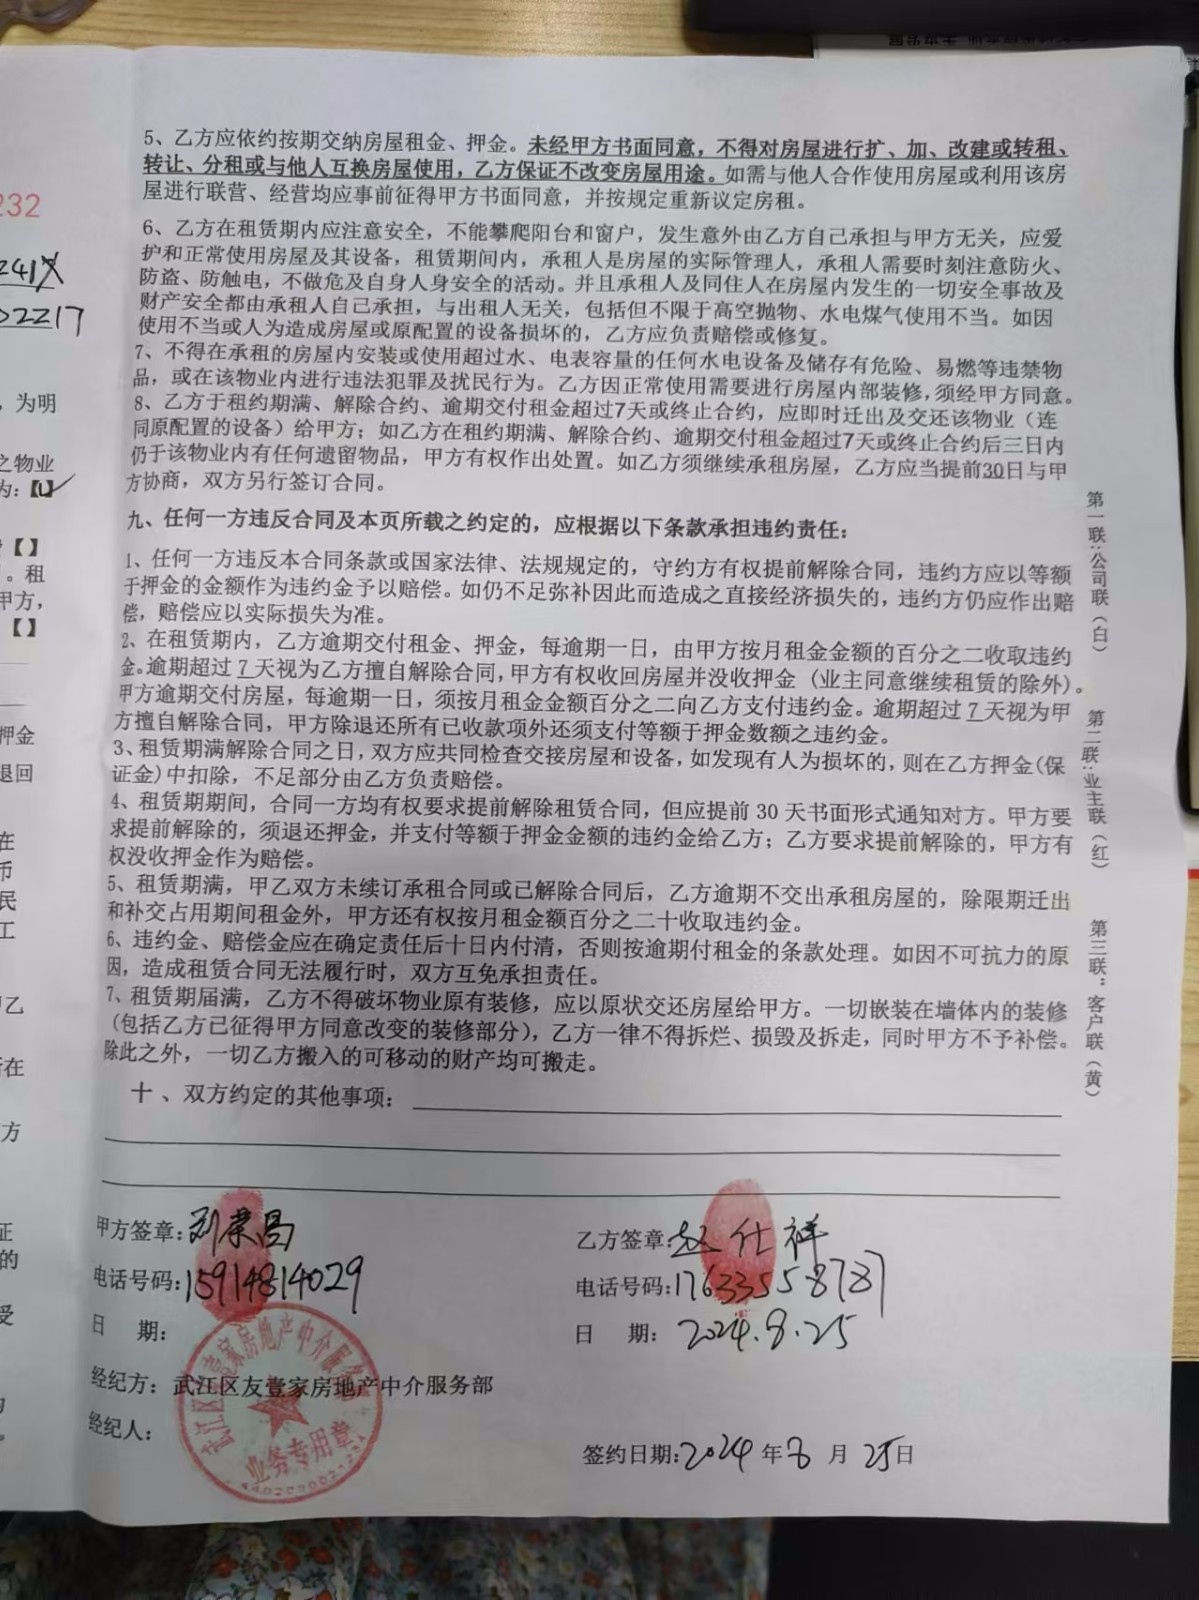 5、乙方应依约按期交纳房屋租金、押金。未经甲方书面同意，不得对房屋进行扩、加、改建或转租、
转让、分租或与他人互换房屋使用，乙方保证不改变房屋用途。如需与他人合作使用房屋或利用该房
屋进行联营、经营均应事前征得甲方书面同意，并按规定重新议定房租。
6、乙方在租赁期内应注意安全，不能攀爬阳台和窗户，发生意外由乙方自己承担与甲方无关，应爱
护和正常使用房屋及其设备，租赁期间内，承租人是房屋的实际管理人，承租人需要时刻注意防火、
防盗、防触电，不做危及自身人身安全的活动。并且承租人及同住人在房屋内发生的一切安全事故及
财产安全都由承租人自己承担，与出租人无关，包括但不限于高空抛物、水电煤气使用不当。如因
使用不当或人为造成房屋或原配置的设备损坏的，乙方应负责赔偿或修复。
7、不得在承租的房屋内安装或使用超过水、电表容量的任何水电设备及储存有危险、易燃等违禁物
品，或在该物业内进行违法犯罪及扰民行为。乙方因正常使用需要进行房屋内部装修，须经甲方同意。
8、乙方于租约期满、解除合约、逾期交付租金超过7天或终止合约，应即时迁出及交还该物业（连
同原配置的设备）给甲方；如乙方在租约期满、解除合约、逾期交付租金超过7天或终止合约后三日内
仍于该物业内有任何遗留物品，甲方有权作出处置。如乙方须继续承租房屋，乙方应当提前30日与甲
方协商，双方另行签订合同。
九、任何一方违反合同及本页所载之约定的，应根据以下条款承担违约责任：
1、任何一方违反本合同条款或国家法律、法规规定的，守约方有权提前解除合同，违约方应以等额
于押金的金额作为违约金予以赔偿。如仍不足弥补因此而造成之直接经济损失的，违约方仍应作出赔
偿，赔偿应以实际损失为准。
2、在租赁期内，乙方逾期交付租金、押金，每逾期一日，由甲方按月租金金额的百分之二收取违约
金。逾期超过 7 天视为乙方擅自解除合同，甲方有权收回房屋并没收押金（业主同意继续租赁的除外）。
甲方逾期交付房屋，每逾期一日，须按月租金金额百分之二向乙方支付违约金。逾期超过 7 天视为甲
方擅自解除合同，甲方除退还所有已收款项外还须支付等额于押金数额之违约金。
3、租赁期满解除合同之日，双方应共同检查交接房屋和设备，如发现有人为损坏的，则在乙方押金(保
证金)中扣除，不足部分由乙方负责赔偿。
4、租赁期期间，合同一方均有权要求提前解除租赁合同，但应提前 30 天书面形式通知对方。甲方要
求提前解除的，须退还押金，并支付等额于押金金额的违约金给乙方；乙方要求提前解除的，甲方有
权没收押金作为赔偿。
5、租赁期满，甲乙双方未续订承租合同或已解除合同后，乙方逾期不交出承租房屋的，除限期迁出
和补交占用期间租金外，甲方还有权按月租金额百分之二十收取违约金。
6、违约金、赔偿金应在确定责任后十日内付清，否则按逾期付租金的条款处理。如因不可抗力的原
因，造成租赁合同无法履行时，双方互免承担责任。
7、租赁期届满，乙方不得破坏物业原有装修，应以原状交还房屋给甲方。一切嵌装在墙体内的装修
(包括乙方已征得甲方同意改变的装修部分)，乙方一律不得拆烂、损毁及拆走，同时甲方不予补偿。
除此之外，一切乙方搬入的可移动的财产均可搬走。
十、双方约定的其他事项：
甲方签章：刘荣昌
电话号码：15914814029
日 期：
经纪方：武江区友壹家房地产中介服务部
经纪人：
乙方签章：赵仕祥
电话号码：17633558787
日 期：2024.8.25
签约日期：2024年8月25日
武江区友壹家房地产中介服务部
业务专用章
第一联：公司联（白）
第二联：业主联（红）
第三联：客户联（黄）
232
241X
02217
，为明
之物业
为：【】
【】
。租
甲方，
【】
押金
退回
在
币
民
工
乙
在
方
证
的
受